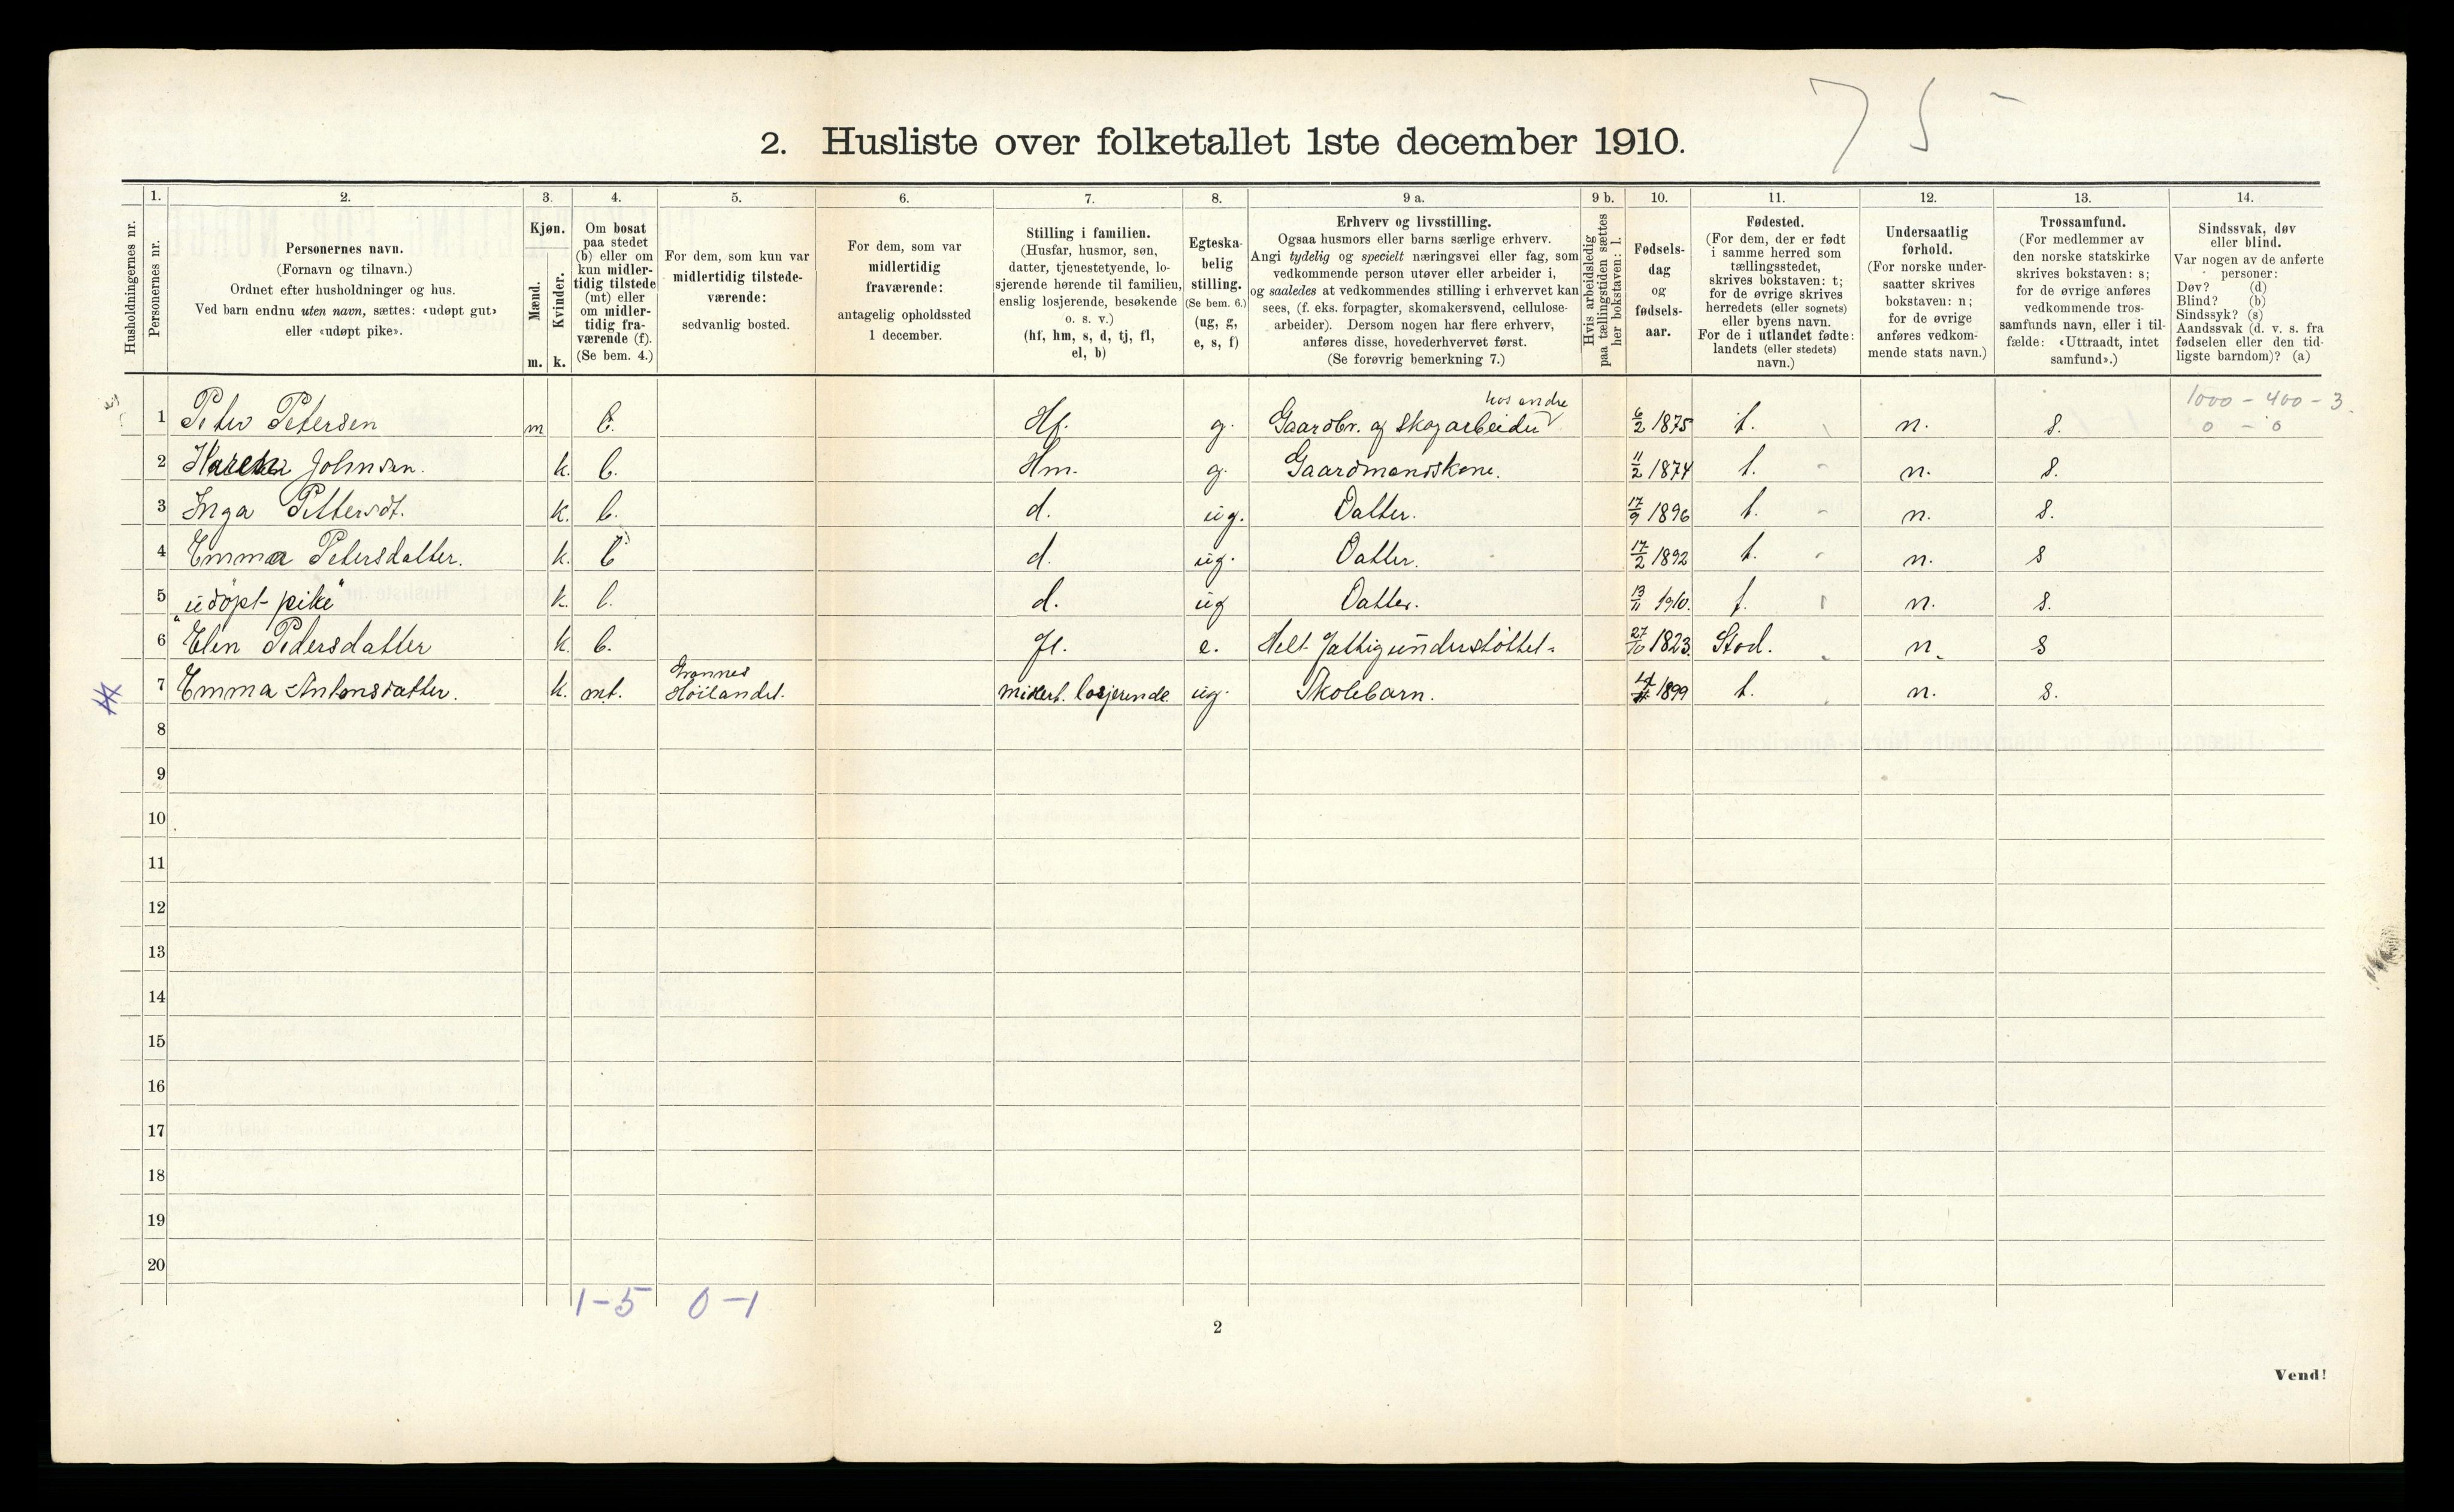 75-
2. Husliste over folketallet 1ste december 1910.
1. 2. 3. 4. 5. 6. 7. 8. 9 a. 9 b. 10. 11. 12. 13. 14.
Husholdningernes nr.
Personernes nr.
Personernes navn.
(Fornavn og tilnavn.)
Ordnet efter husholdninger og hus.
Ved barn endnu uten navn, sættes: «udøpt gut»
eller «udøpt pike».
Kjøn.
Mænd.
Kvinder.
m. k.
Om bosat
paa stedet
(b) eller om
kun midler-
tidig tilstede
(mt) eller
om midler-
tidig fra-
værende (f).
(Se bem. 4.)
For dem, som kun var
midlertidig tilstede-
værende:
sedvanlig bosted.
For dem, som var
midlertidig
fraværende:
antagelig opholdssted
1 december.
Stilling i familien.
(Husfar, husmor, søn,
datter, tjenestetyende, lo-
sjerende hørende til familien,
enslig losjerende, besøkende
o. s. v.)
(hf, hm, s, d, tj, fl,
el, b)
Egteska-
belig
stilling.
(Se bem. 6.)
(ug, g,
e, s, f)
Erhverv og livsstilling.
Ogsaa husmors eller barns særlige erhverv.
Angi tydelig og specielt næringsvei eller fag, som
vedkommende person utøver eller arbeider i,
og saaledes at vedkommendes stilling i erhvervet kan
sees, (f. eks. forpagter, skomakersvend, cellulose-
arbeider). Dersom nogen har flere erhverv,
anføres disse, hovederhvervet først.
(Se forøvrig bemerkning 7.)
Hvis arbeidsledig
paa tællingstiden sættes
her bokstaven: l.
Fødsels-
dag
og
fødsels-
aar.
Fødested.
(For dem, der er født
i samme herred som
tællingsstedet,
skrives bokstaven: t;
for de øvrige skrives
herredets (eller sognets)
eller byens navn.
For de i utlandet fødte:
landets (eller stedets)
navn.)
Undersaatlig
forhold.
(For norske under-
saatter skrives
bokstaven: n;
for de øvrige
anføres vedkom-
mende stats navn.)
Trossamfund.
(For medlemmer av
den norske statskirke
skrives bokstaven: s;
for de øvrige anføres
vedkommende tros-
samfunds navn, eller i til-
fælde: «Uttraadt, intet
samfund».)
Sindssvak, døv
eller blind.
Var nogen av de anførte
personer:
Døv? (d)
Blind? (b)
Sindssyk? (s)
Aandssvak (d. v. s. fra
fødselen eller den tid-
ligste barndom)? (a)
hos andre 1000 - 400 - 3.
1 Peter Petersen m b. Hf. g. Gaardbr. og skogarbeider 6/2 1875 t. n. s. 0 - 0
2 Karen Johnsen. k. b. Hm. g. Gaardmandskone. 11/2 1874 t. n. s.
3 Inga Pettersdt. k. b. d. ug. Datter. 17/9 1896 t. n. s.
4 Emma Petersdatter. k. b d. ug. Datter. 17/2 1892 t. n. s
5 "udöpt pike" k. b. d. ug Datter. 13/11 1910. t. n. s.
6 Elen Pedersdatter k. b. fl. e. Helt fattigunderstöttet. 27/10 1823. Stod. n. s
7 Emma Antonsdatter. k. mt. Höilandet. midlert. losjerende. ug. Skolebarn. 1899 t. n. s.
8
9
10
11
12
13
14
15
16
17
18
19
20
1-5 0-1
2
Vend!